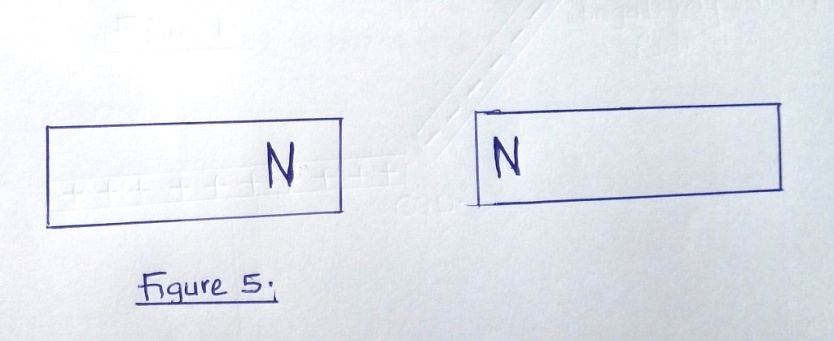 N
N
Figure 5: